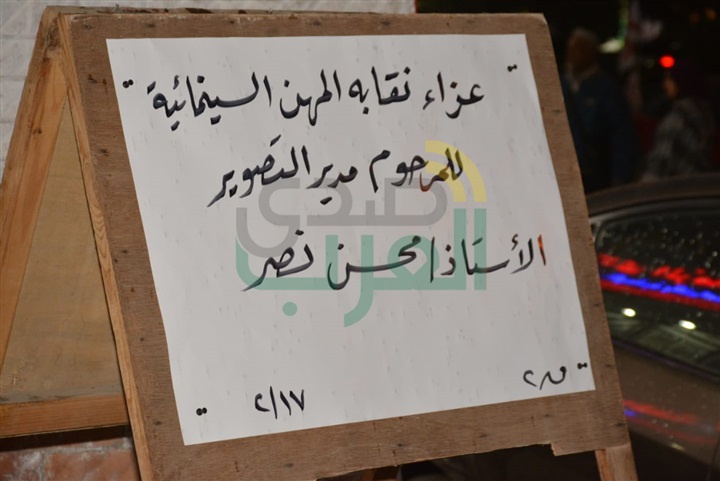 " عزاء نقابه المهن السينمائية "
للمرحوم مدير التصوير
الأستاذ/ محسن نصر
" ٢/١٧ "
صدى
العرب